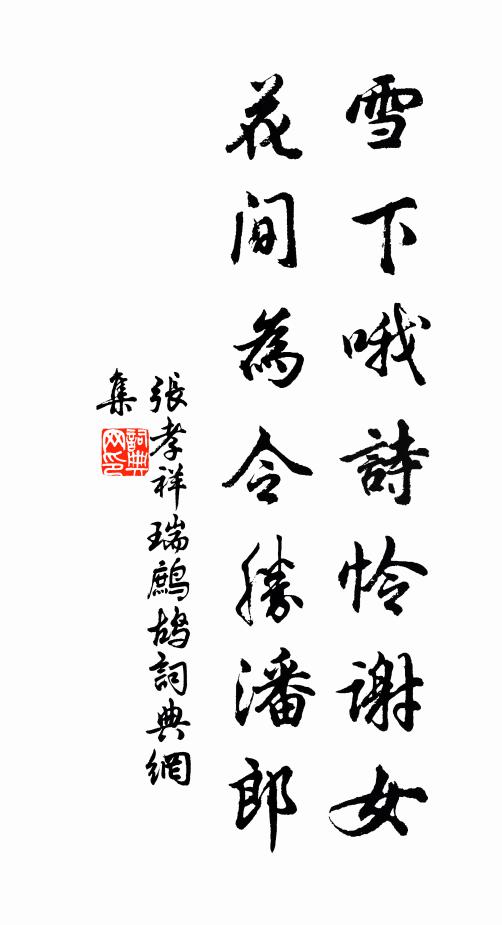 雪下哦詩怜谢女
花间為令勝潘郎
張孝祥瑞鷓鴣詞典網
集
詞典网印